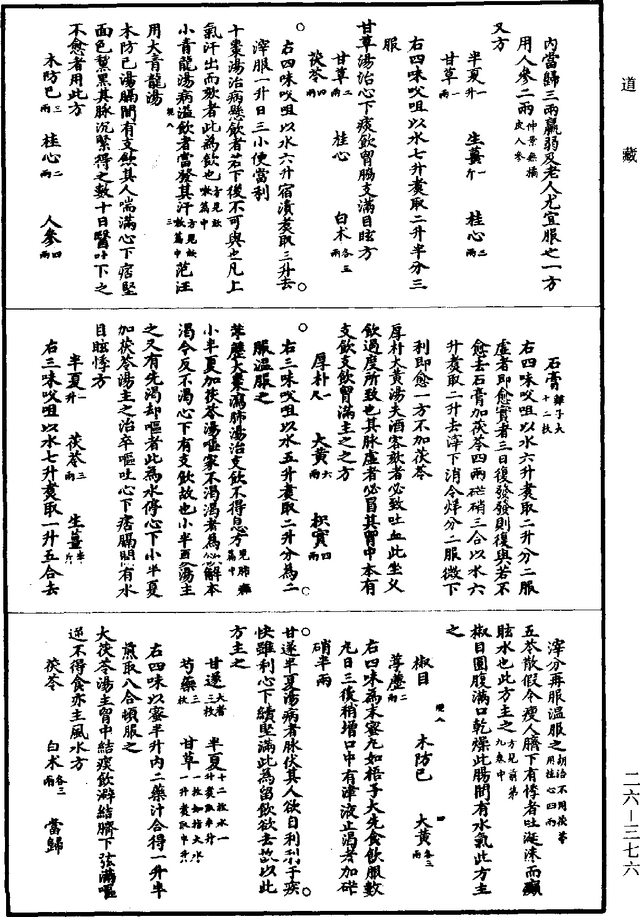 道藏
內當歸三兩羸弱及老人尤宜服之一方
用人參二兩仲景無橘皮人參
又方
半夏一升 生薑一斤 桂心三兩
甘草一兩
右四味㕮咀以水七升煑取二升半分三
服
甘草湯治心下痰飲胷脇支滿目眩方
甘草二兩 桂心 白术各三兩
茯苓四兩
右四味㕮咀以水六升宿漬煑取三升去
滓服一升日三小便當利
十棗湯治病懸飲者若下後不可與也凡上
氣汗出而欬者此為飲也方見欬嗽篇中
小青龍湯病溢飲者當發其汗方見欬嗽篇中范汪
用大青龍湯
木防已湯膈間有支飲其人喘滿心下痞堅
面色黧黑其脉沉緊得之數十日醫吐下之
不愈者用此方
木防已三兩 桂心二兩 人參四兩
石膏雞子大十二枚
右四味㕮咀以水六升煑取二升分二服
虛者即愈實者三日復發發則復與若不
愈去石膏加茯苓四兩硭硝三合以水六
升煑取二升去滓下消令烊分二服微下
利即愈一方不加茯苓
厚朴大黃湯夫酒客欬者必致吐血此坐乂
飲過度所致也其脉虛者必冒其胷中本有
支飲支飲胷滿主之之方
厚朴一尺 大黃六兩 枳實四兩
右三味㕮咀以水五升煑取二升分為二
服溫服之
葶藶大棗瀉肺湯治支飲不得息方見肺癰篇中
小半夏加茯苓湯嘔家不渴渴者為欲解本
渴今反不渴心下有支飲故也小半夏湯主
之又有先渴却嘔者此為水停心下小半夏
加茯苓湯主之治卒嘔吐心下痞膈間有水
目眩悸方
半夏一升 茯苓三兩 生薑半斤
右三味㕮咀以水七升煑取一升五合去
滓分再服溫服之胡洽不用茯苓用桂心四兩
五苓散假令瘦人臍下有悸者吐涎沫而癲
眩水也此方主之方見前第九卷中
椒目圓腹滿口乾燥此腸間有水氣此方主
之
椒目 木防已 大黃各三兩
葶藶二兩
右四味為末蜜丸如梧子大先食飲服數
九日三後稍增口中有津液止渴者加硭
硝半兩
甘遂半夏湯病者脉伏其人欲日利利子疾
快雖利心下續堅滿此為留飲欲去故以此
方主之
甘遂大者三枚 半夏十二枚水一升煑取半升
芍藥三枚 甘草一枚如指大水一升煑取半升
右四味以蜜半升內二藥汁合得一升半
煎取八合頓服之
大茯苓湯主胷中結痰飲澼結臍下弦滿嘔
逆不得食亦主風水方
茯苓 白术各三兩 當歸
二六一三七六